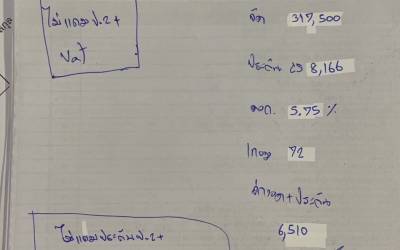 ไม่แถมป.2+
Vat
จัด 317,500
ประกัน 25 8,166
ดอก. 5.75 %
งวด 72
ค่างวด+ประกัน
6,510
ไม่แถมประกันป.2+